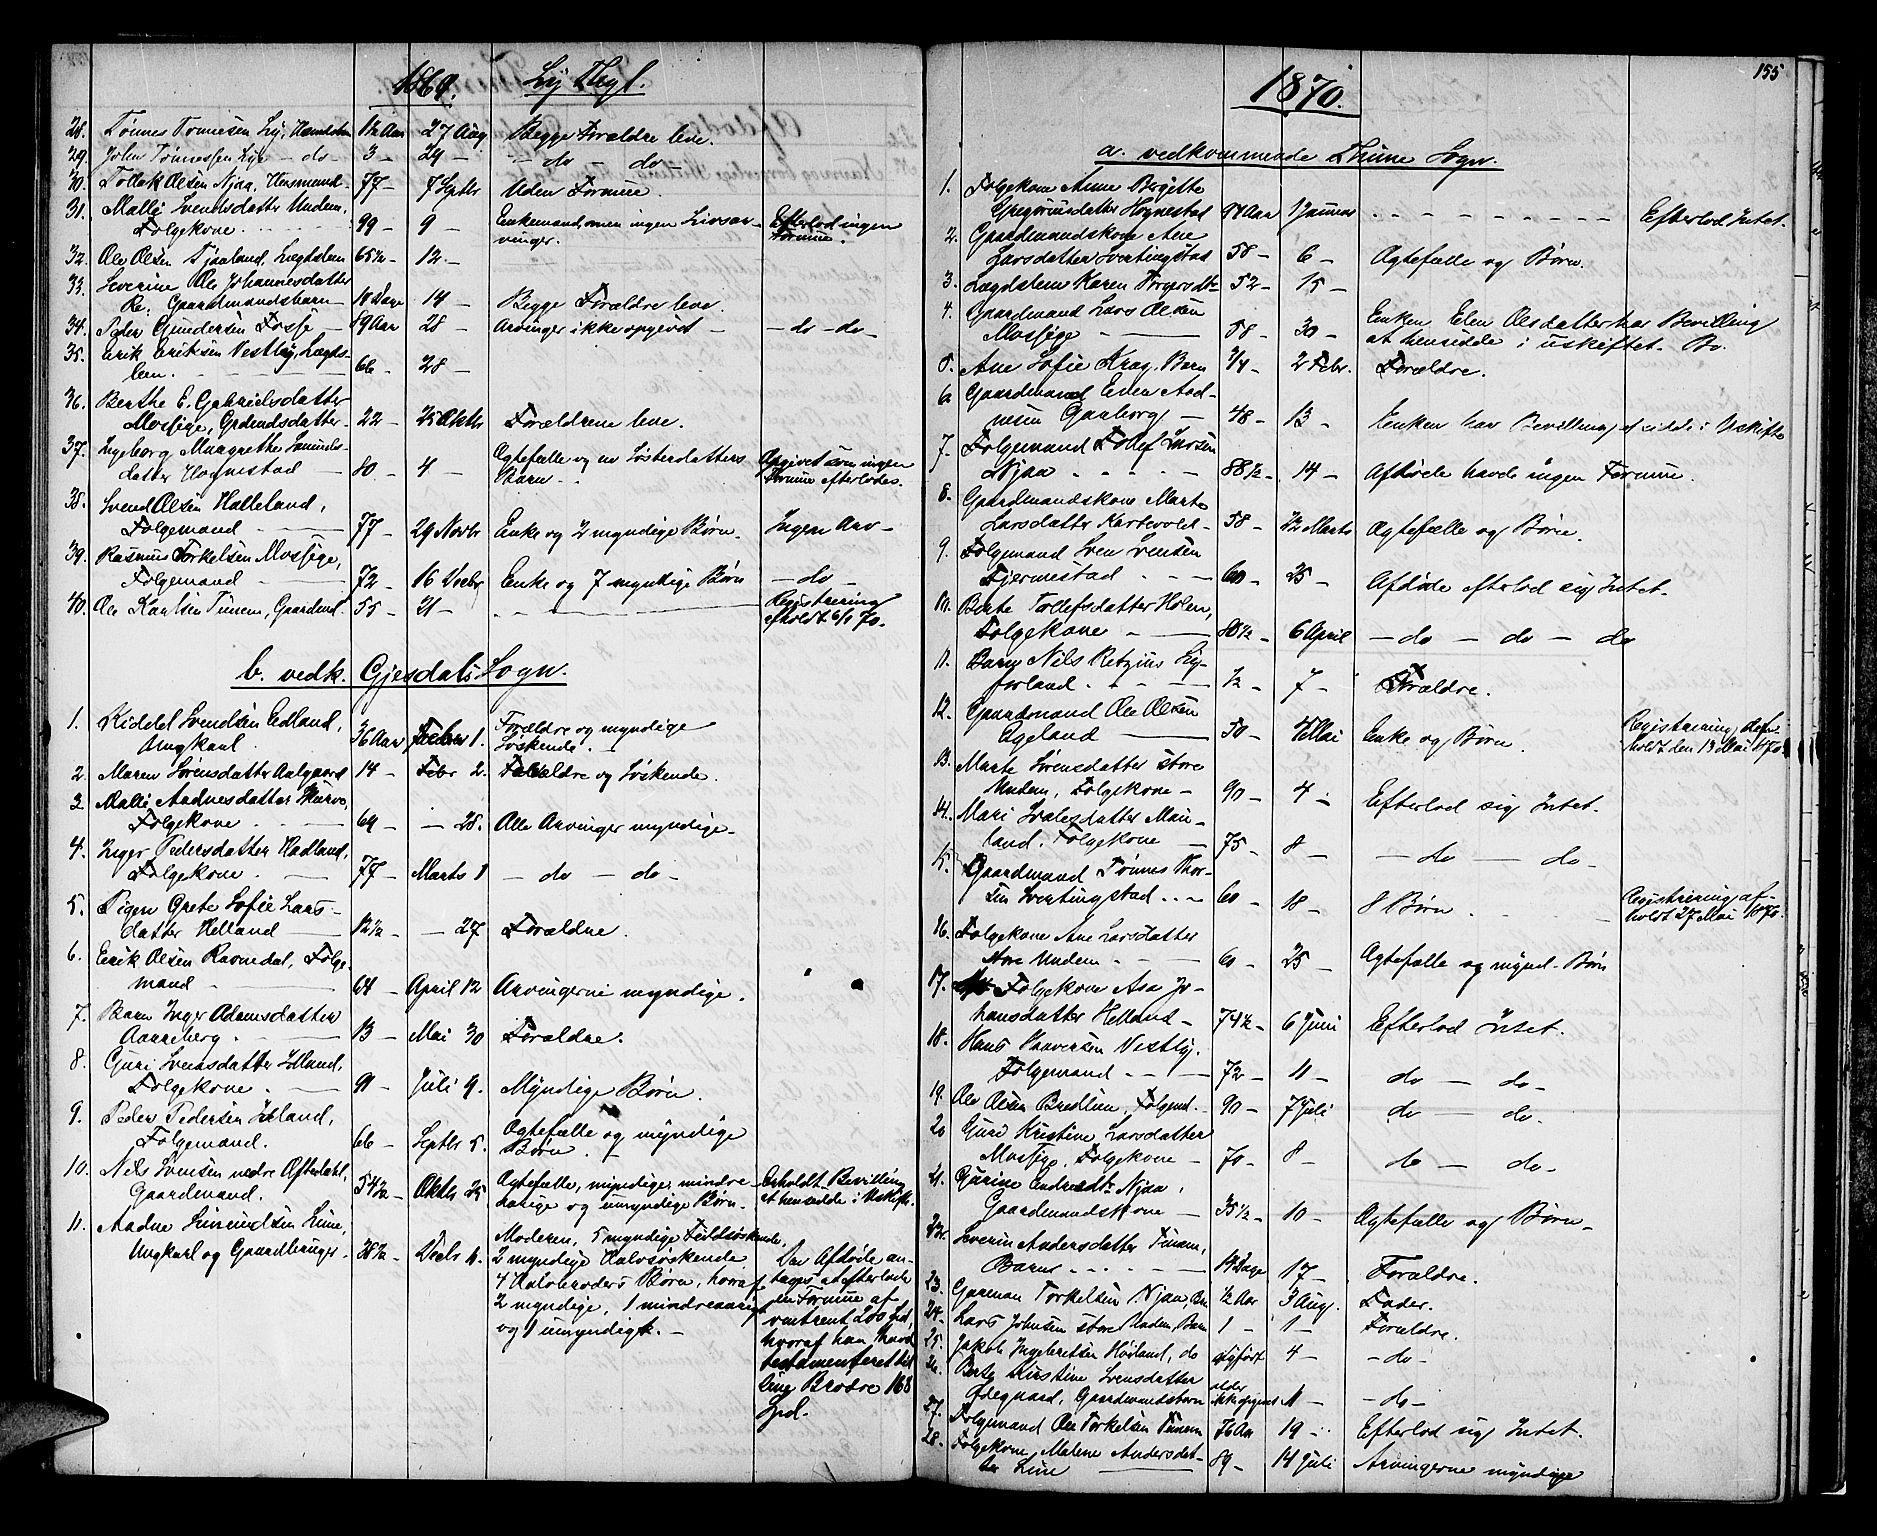 1869. Ly Thgl.
28. Tønnes Tønnesen Ly, 1½ Aar 27 Aug Begge Forældre leve.
29. John Tønnessen Lye - do 3 - 29 - - do - do -
30. Tollak Olsen Njaa, Huusmand - 77 - 7 Septbr Uden Formue.
31. Malli Svendsdatter Undem,
Folgekone 99 - 9 - Enkemand, men ingen Livsar- Efterlod ingen
vinger. Formue.
32. Ole Olsen Tjaaland, Lægdslem 65½ - 12 -
33. Severine Ole Johannesdatter
Re, Gaardmandsbarn 14 - Begge Forældre leve.
34. Peder Gundersen Fosse 89 Aar 28 - Arvinger ikke opgivet - - do - do -
35. Erik Eriksen Vestly, Lægds-
lem. 66 - 28 -
36. Berthe E. Gabrielsdatter
Mossige, 22 - 25 Oktbr Forældrene leve.
37. Ingeborg Margrethe
datter Hognestad 80 - 4 - Agtefælle og en Søsterdatters Opgivet som ingen
Børn - Formue efterlodes.
38. Svend Olsen Halleland,
Folgemand 77 - 29 Novbr Enke og 2 myndige Børn. Ingen Arv -
39. Rasmus Torkelsen Mossige,
Folgemand 72 - 16 Decbr Enke og 7 myndige Børn - do -
40. Ole Tunem, Gaardmd. 55 - 21 - Registrering
afholdt 6/1 70.
b. vedk. Gjesdals Sogn.
1. Kiddel Svendsen Edland,
Ungkarl 36 Aar Febr 1. Forældre og myndige
Søskende.
2. Maren Sørensdatter Aalgaard 14 - Febr 2. Forældre og Søskende.
3. Malli Aadnesdatter Skurve,
Folgekone 69 - - 28. Alle Arvinger myndige -
4. Inger Pedersdatter Hadland,
Folgekone. 77 - Marts 1 - do - do -
5. Pigen Grete Sofie Lars-
datter Helland 12½ - - 27 Forældre.
6. Erik Olsen Ravndal, Folge-
mand 64 - April 12 Arvingerne myndige.
7. Barn Inger Adamsdatter
13 - Mai 30 Forældre.
8. Guri Svensdatter
Folgekone. 91 - Juli 9. Myndige Børn.
9. Peder Pedersen
Folgemand. 66 - Septbr 5. Agtefælle og myndige
Børn.
10. Nils Svensen nedre Ofterdahl,
Gaardmand. 54½ - Oktbr 25 Agtefælle, myndige, mindre- Erholdt Bevilling
aarige og umyndige Børn. at hensidde i Uskifte.
11. Aadne Simundsen Lime,
Ungkarl og Gaardbruger. 38½ - Decbr 11. Moderen, 5 myndige Fuldsøskende,
2 myndige Halvsøskende
4 Halvbroders Børn, hvoraf
2 myndige, 1 mindreaarig
og 1 umyndigt. -
Den Afdøde an-
tages at efterlade
en Formue af
omtrent 200 Spd,
hvoraf han havde
testamenteret til
sine Brødre 168
Spd.
155
1870.
a. vedkommende Thime Sogn.
1. Folgekone Anne Birgitte
Gregoriusdatter Hognestad 91 Aar 1 Januar - - - Efterlod Intet.
2. Gaardmandskone Ane
Larsdatter Svertingstad 58 - 6 - Agtefælle og Børn.
3. Lægdslem Karen 52 - 15 -
4. Gaardmand Lars Olsen
Mossige 58 - 30 - Enken Elen Olsdatter har Bevilling
at hensidde i uskiftet Bo.
5. Ane Sofie Krag, Barn 3/4 - 2 Febr. Forældre.
6. Gaardmand Even Aad-
nesen 48 - 13 - Enken har Bevilling at sidde i Uskifte
7. Folgemand Tollef Larsen
Njaa 88½ - 14 - Afdøde havde ingen Formue.
8. Gaardmandskone Marte
Larsdatter 58 - 22 Marts Agtefælle og Børn.
9. Folgemand Sven Svensen
Fjermestad 60 - 25 - Afdøde efterlod sig Intet.
10. Berte Tollefsdatter Holen,
Folgekone 80½ - 6 April - do - do - do
11. Barn Nils Retzius Ly-
½ - 7 - Forældre.
12. Gaardmand Ole Olsen
Egeland 50 - 4 Mai Enke og Børn. Registrering af-
holdt den 13 Mai 1870.
13. Marte Sørensdatter store
Undem, Folgekone - 90 - 4 - Efterlod sig Intet.
14. Mari
land. Folgekone 75 - 8 - - do - do -
15. Gaardmand Tønnes Thor-
sen Svertingstad 60 - 18 - 8 Børn. Registrering af-
holdt 27 Mai 1870.
16. Folgekone Ane Larsdatter
Store Undem 60 - 25 - Agtefælle og mynd. Børn
17. Folgekone Asa Jo-
hansdatter Helland - 74½ - 6 Juni Efterlod Intet.
18. Hans Vestly,
Folgemand 72 - 11 - do - do -
19. Ole Olsen Bredlien, Folgemd. 90 - 7 Juli do - do -
20 Guri Kristine Larsdatter
Mossige, Folgekone - 70 - 8 - do - do -
21. Gurine Endresdtr Njaa,
Gaardmandskone 35½ - 10 - Agtefælle og Børn -
22. Severin Andersdatter Tunem,
Barn 14 Dage 17 - Forældre.
23. Garman Torkelsen Njaa, Bn ½ Aar 3 Aug. Fader.
24. Lars Johnsen store Undem, Barn 1 - 1 - Forældre.
25. Jakob Ingebretsen Høiland, do dødfødt 4 - - do -
26. Berte Kirstine Svensdatter
Ødegaard, Gaardmandsbarn alder
ikke opgivet 11 - - do -
27. Folgemand Ole Torkelsen Tunem 76 Aar 19 - Efterlod sig Intet.
28. Folgekone, Malene Andersdat-
ter Lime 89 - 14 Juli Arvingerne myndige